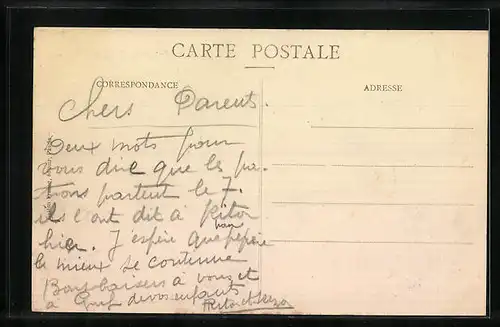 CARTE POSTALE
CORRESPONDANCE
ADRESSE
Chers Parents.
Deux mots pour
vous dire que les pa-
trons partent le 7.
ils l'ont dit à
hier. J'espère que pépère
le mieux se continue
baisers à vous et
à de vos enfants